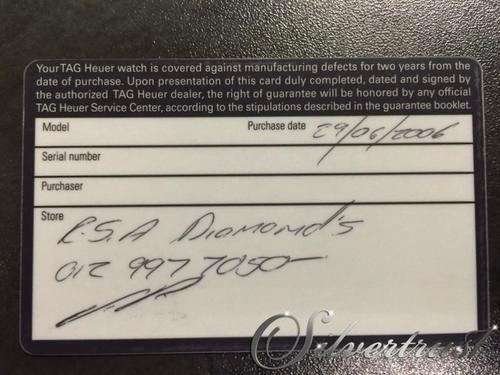 Your TAG Heuer watch is covered against manufacturing defects for two years from the
date of purchase. Upon presentation of this card duly completed, dated and signed by
the authorized TAG Heuer dealer, the right of guarantee will be honored by any official
TAG Heuer Service Center, according to the stipulations described in the guarantee booklet.
Model Purchase date 29/06/2006
Serial number
Purchaser
Store
R.S.A Diamond's
012 997 7050